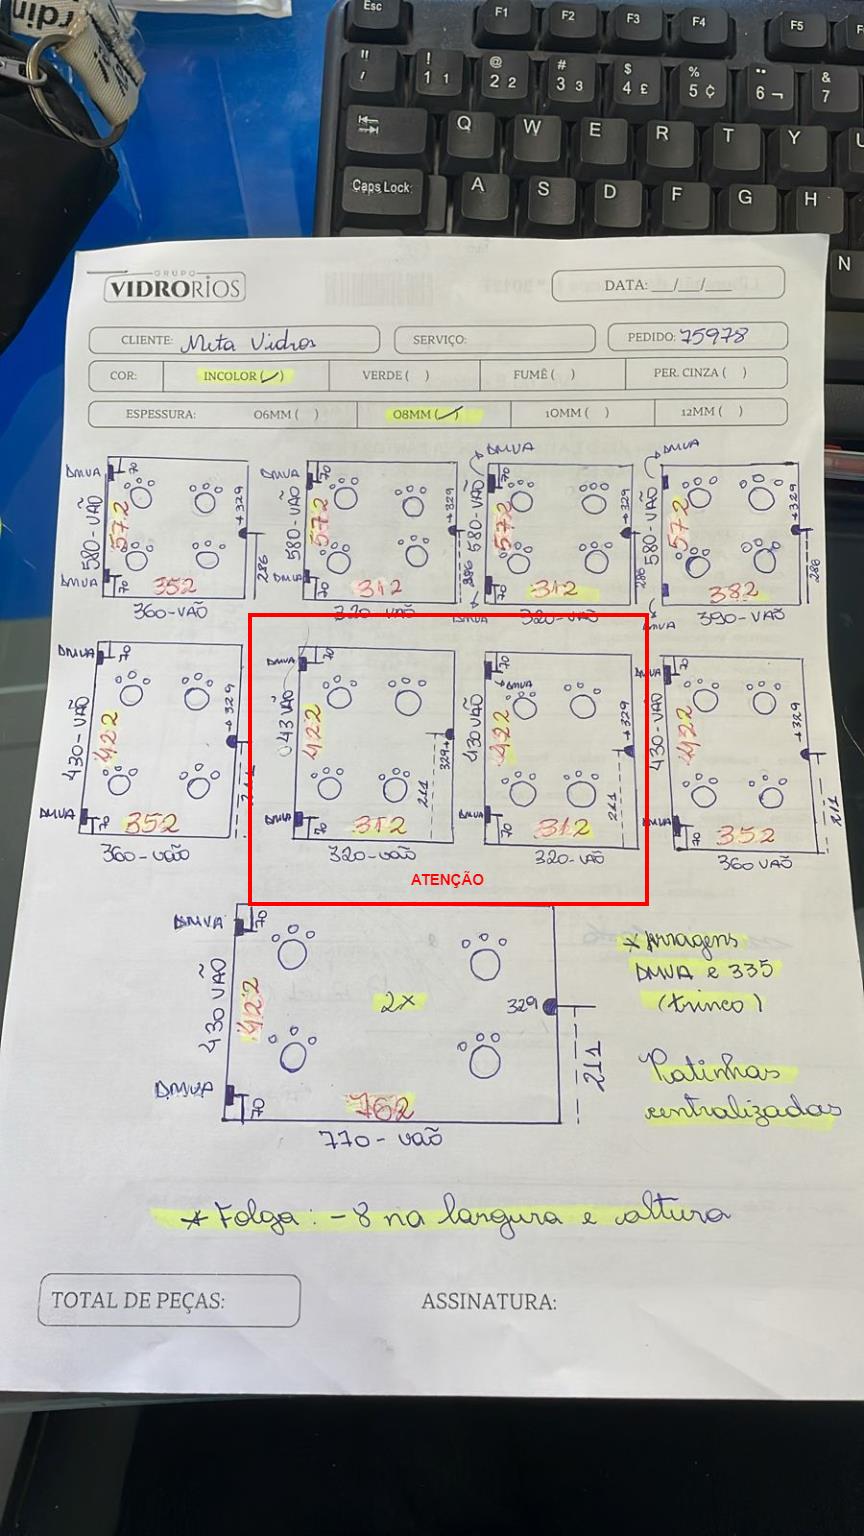 rdin
Esc F1 F2 F3 F4 F5
" / ! 1 1 @ 2 2 # 3 3 $ 4 £ % 5 ¢ ¨ 6 ¬ & 7
Q W E R T Y
Caps Lock A S D F G H
N
GRUPO
VIDRORIOS
DATA: __/__/__
CLIENTE: Meta Vidros
SERVIÇO:
PEDIDO: 75978
COR: INCOLOR (✓) VERDE ( ) FUMÊ ( ) PER. CINZA ( )
ESPESSURA: 06MM ( ) 08MM (✓) 10MM ( ) 12MM ( )
DMVA 70 580-VÃO 572 329 286 DMVA 70 352 360-VÃO
DMVA 70 580-VÃO 572 329 286 DMVA 70 312 320-VÃO
DMVA 70 580-VÃO 572 329 286 DMVA 70 312 320-VÃO
DMVA 580-VÃO 572 329 286 DMVA 382 390-VÃO
DMVA 70 430-VÃO 422 329 211 DMVA 70 352 360-VÃO
DMVA 70 043 VÃO 422 329 211 DMVA 70 312 320-VÃO
70 DMVA 430 VÃO 422 329 211 DMVA 70 312 320-VÃO
DMVA 70 430-VÃO 422 329 211 DMVA 70 352 360 VÃO
ATENÇÃO
DMVA 70 430 VÃO 422 2x 329 211 DMVA 70 762 770-VÃO
* ferragens
DMVA e 335
(trinco)
Patinhas
centralizadas
* Folga: -8 na largura e altura
TOTAL DE PEÇAS:
ASSINATURA: